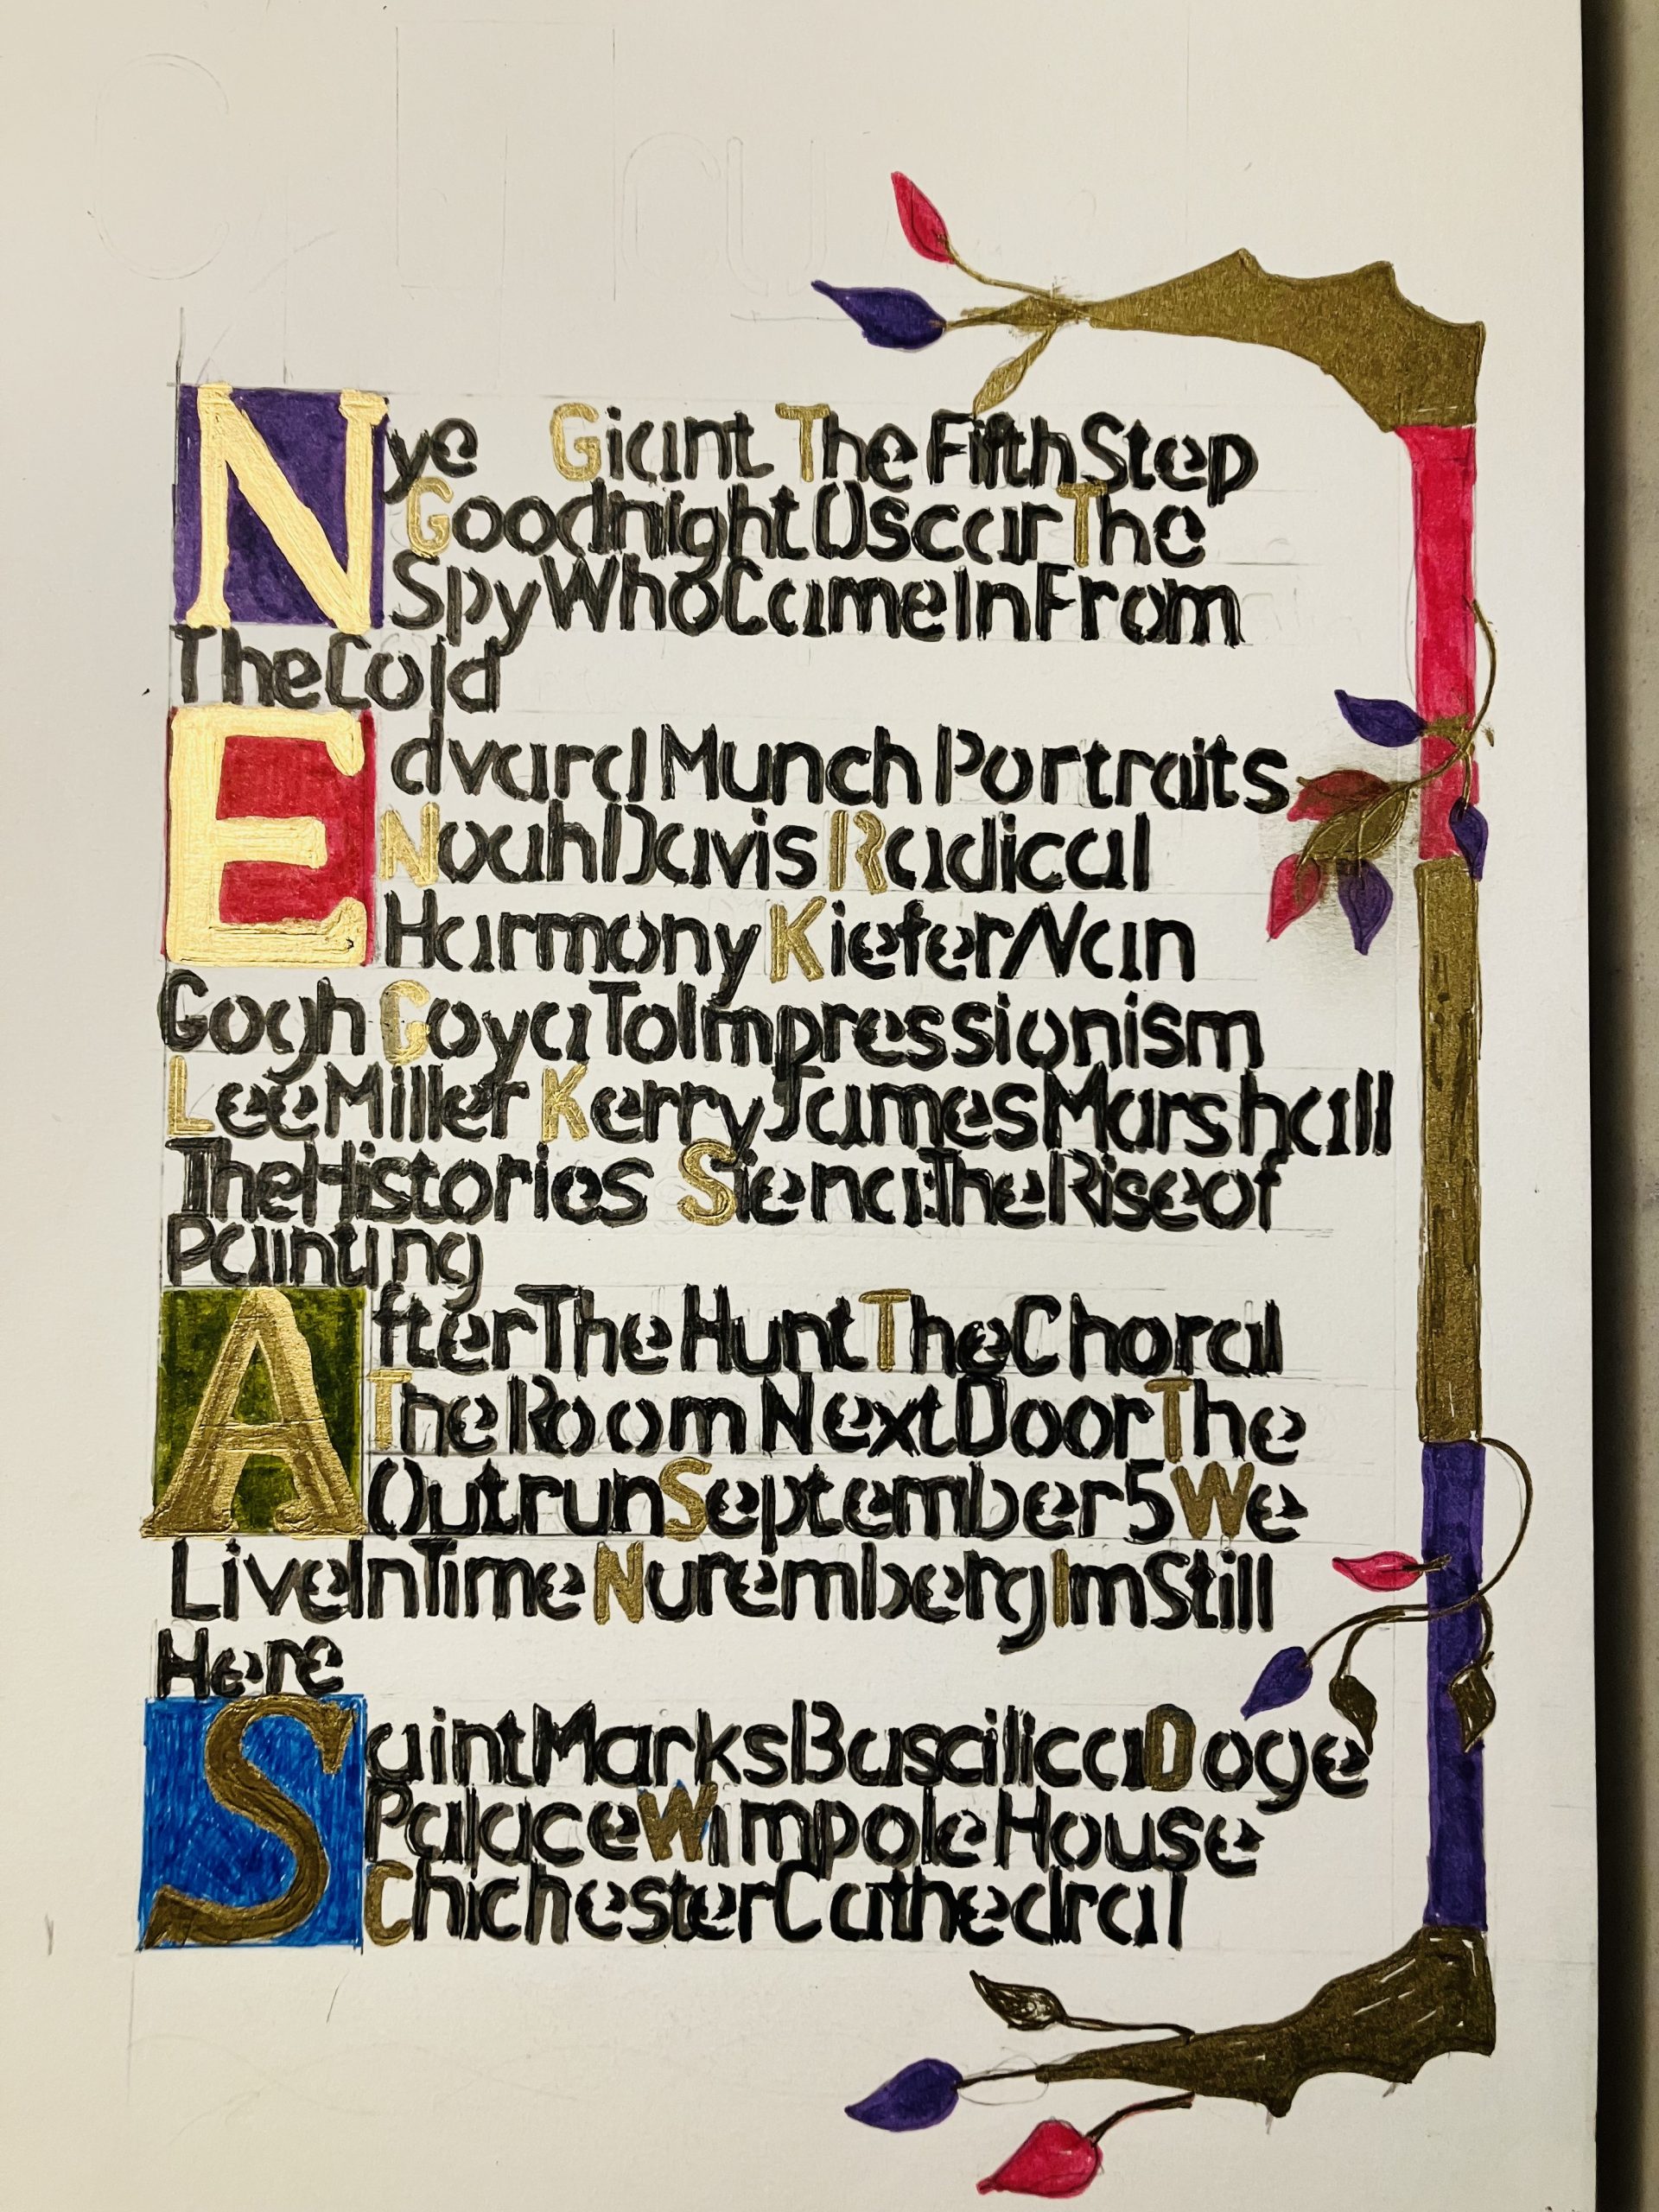 Nye Giant The Fifth Step
Goodnight Oscar The
Spy Who Came In From
The Cold
Edvard Munch Portraits
Noah Davis Radical
Harmony Kiefer/Van
Gogh Goya To Impressionism
Lee Miller Kerry James Marshall
The Histories Siena: The Rise of
Painting
After The Hunt The Choral
The Room Next Door The
Outrun September 5 We
Live In Time Nuremberg Im Still
Here
Saint Marks Bascilicca Doge
Palace Wimpole House
Chichester Cathedral